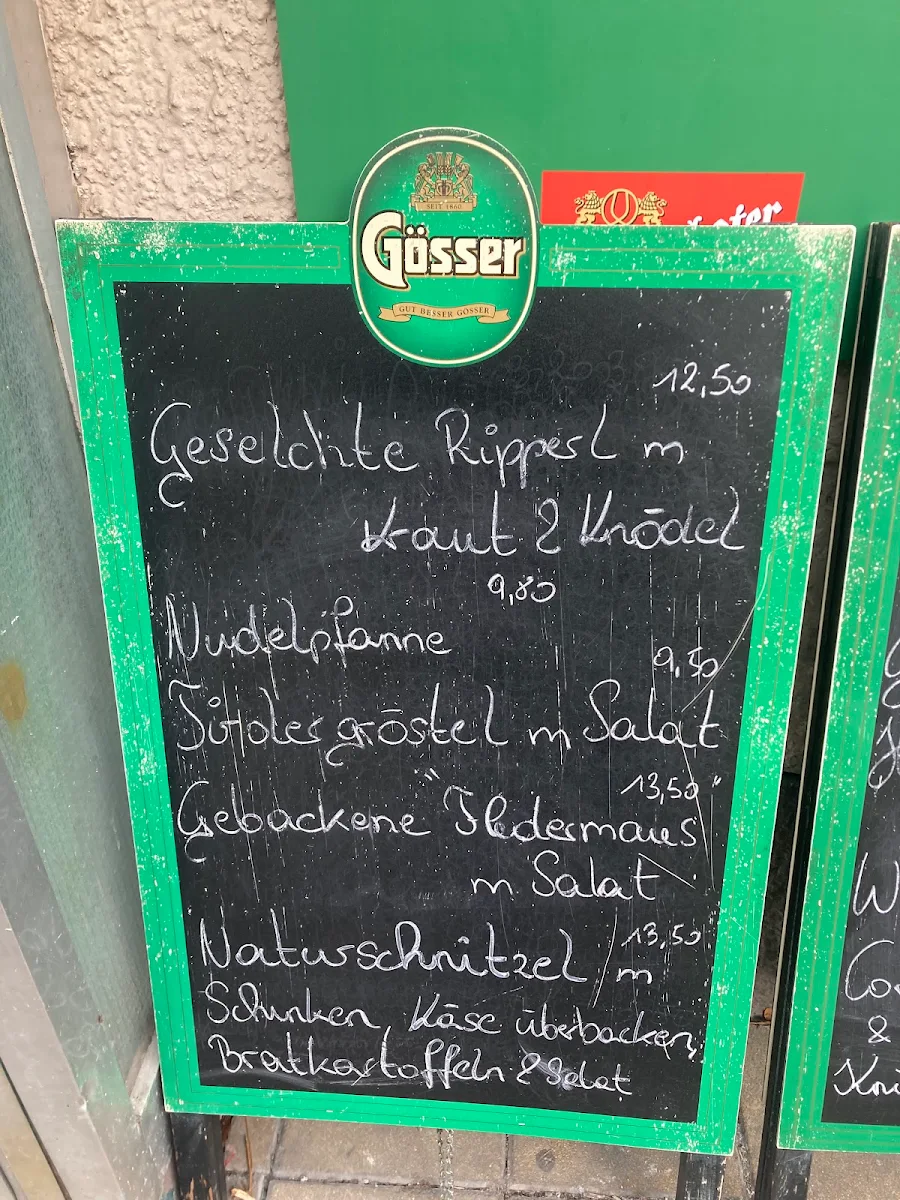 SEIT 1860
Gösser
GUT BESSER GÖSSER
12,50
Geselchte Ripperl m
Kraut & Knödel
9,80
Nudelpfanne
9,50
Tirolergröstel m Salat
13,50
Gebackene "Fledermaus"
m Salat
13,50
Naturschnitzel m
Schinken, Käse überbacken,
Bratkartoffeln & Salat
W
&